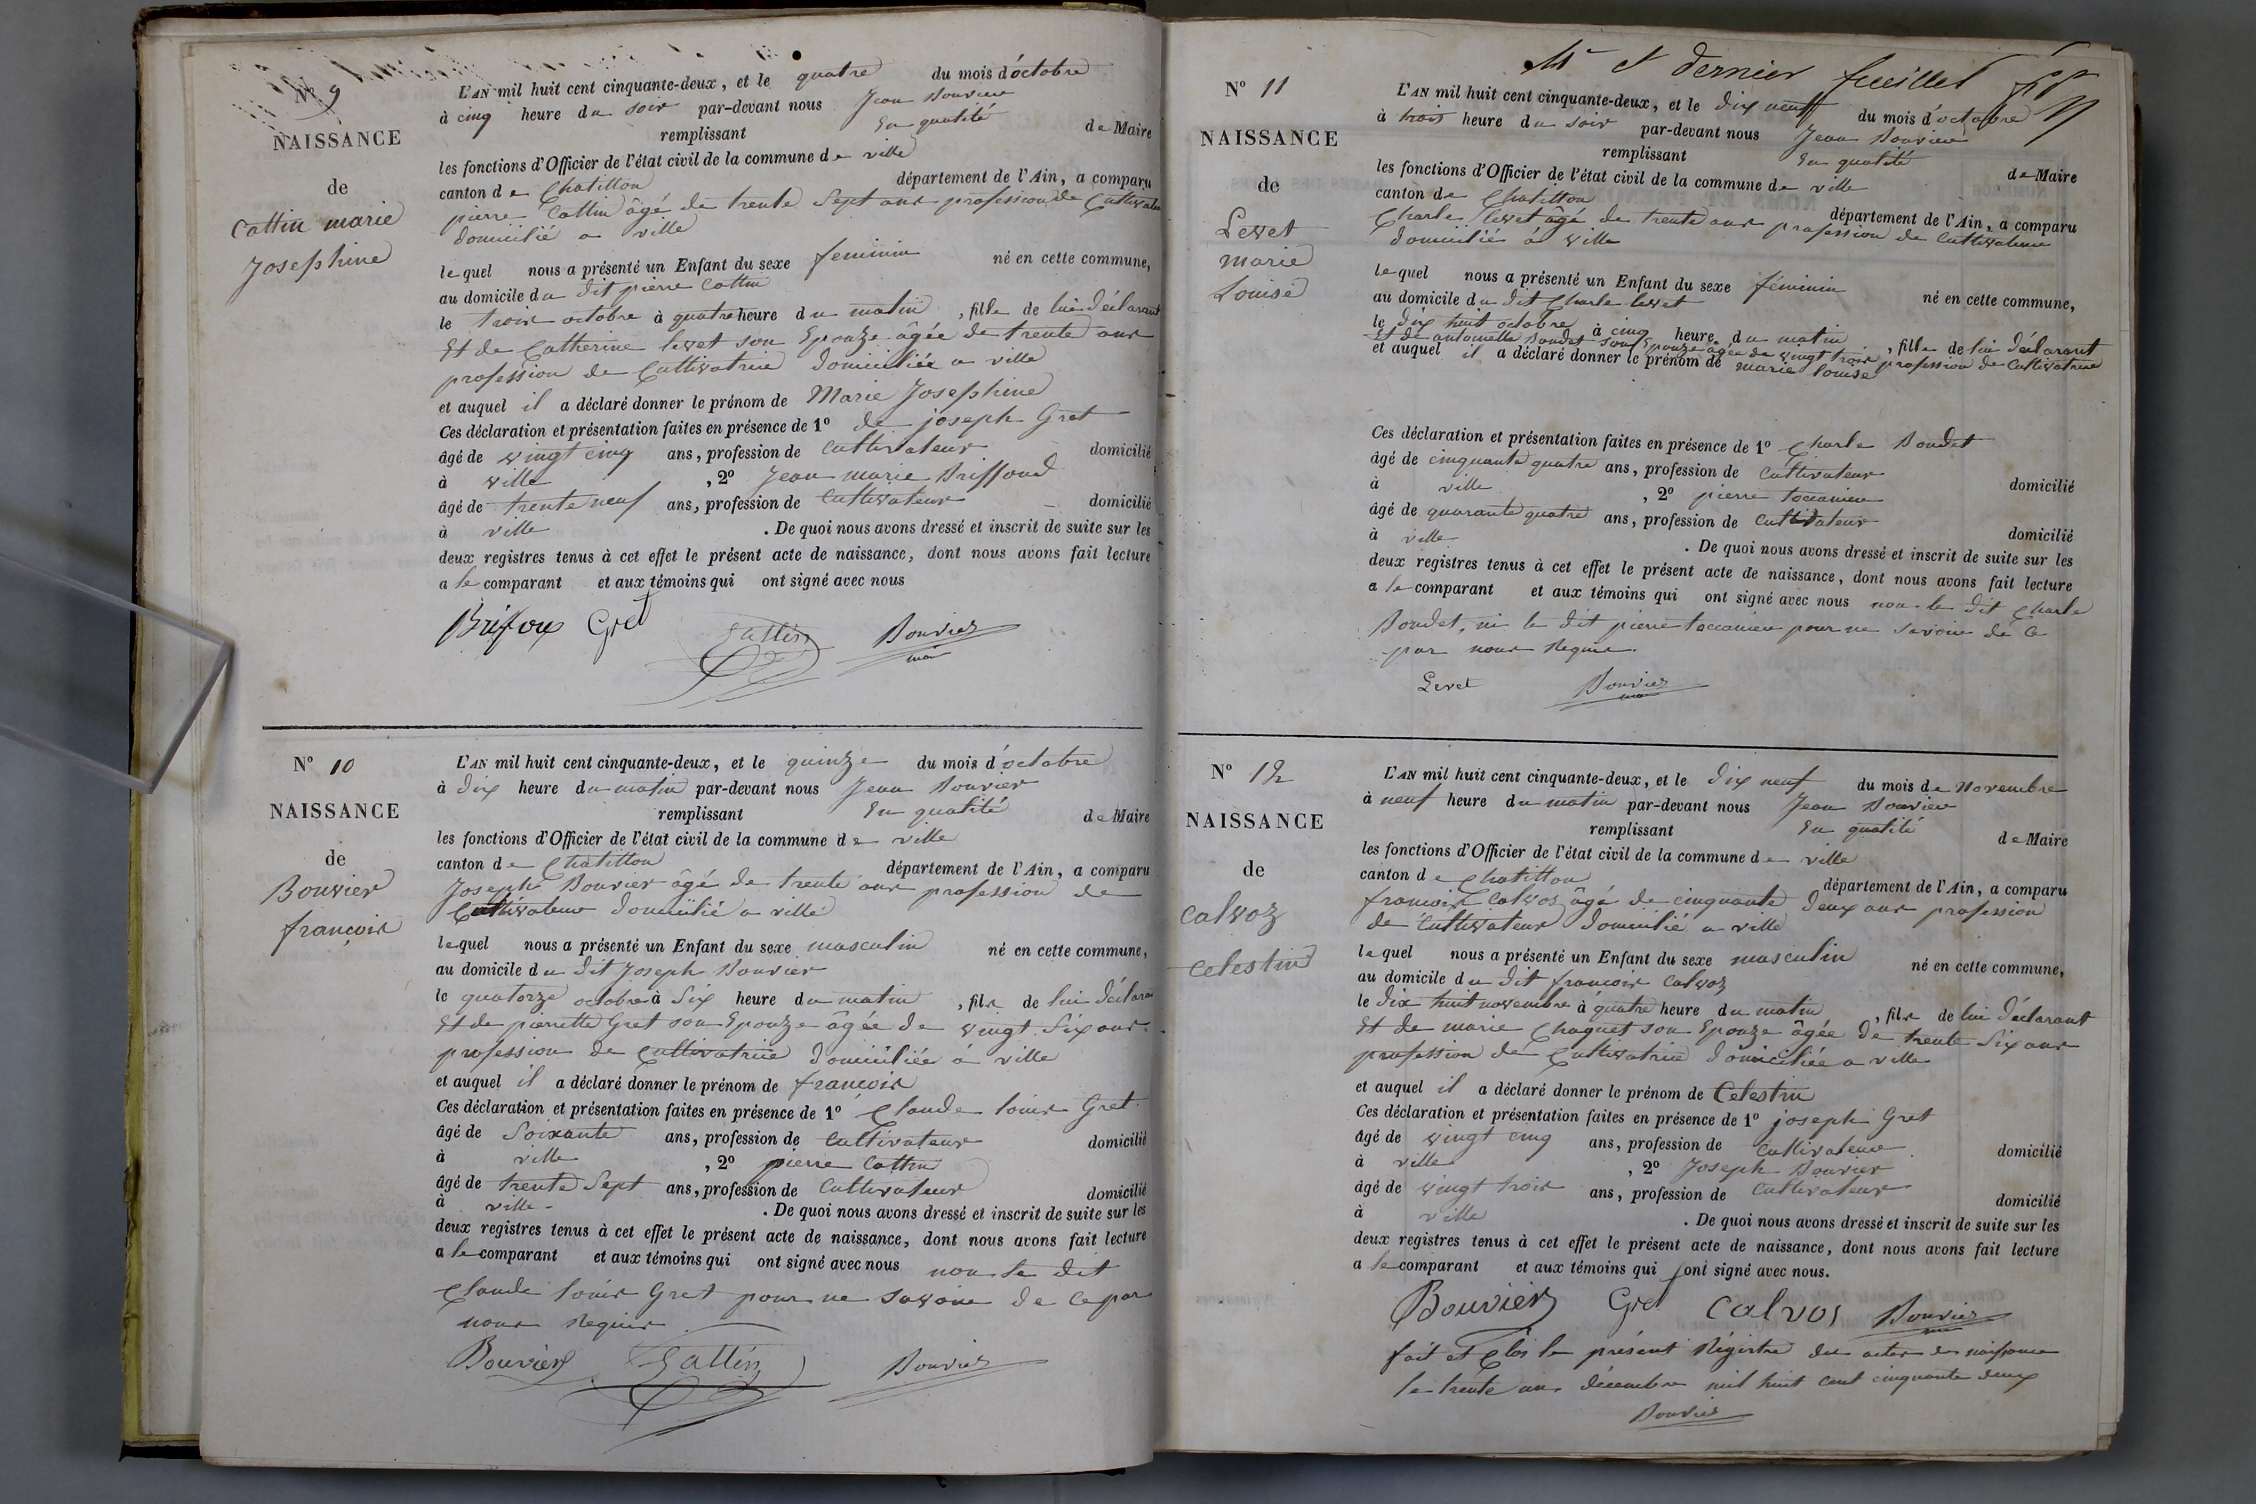 Nº 9
NAISSANCE
de
Cattin marie
Josephine
L'AN mil huit cent cinquante-deux, et le quatre du mois d'octobre
à cinq heure du soir par-devant nous Jean Bouvier
remplissant En qualité de Maire
les fonctions d'Officier de l'état civil de la commune de ville
canton de Chatillon département de l'Ain, a comparu
pierre Cattin âgé de trente Sept ans profession de Cultivateur
domicilié a ville
lequel nous a présenté un Enfant du sexe feminin né en cette commune,
au domicile du dit pierre Cattin
le trois octobre à quatre heure du matin, fille de lui déclarant
Et de Catherine levet son Epouze âgée de trente ans
profession de Cultivatrice domiciliée a ville
et auquel il a déclaré donner le prénom de Marie Josephine
Ces déclaration et présentation faites en présence de 1º de joseph Gret
âgé de vingt cinq ans, profession de Cultivateur domicilié
à ville, 2º Jean marie Briffoud
âgé de trente neuf ans, profession de Cultivateur domicilié
à ville. De quoi nous avons dressé et inscrit de suite sur les
deux registres tenus à cet effet le présent acte de naissance, dont nous avons fait lecture
a le comparant et aux témoins qui ont signé avec nous
Gret Cattin Bouvier
Nº 10
NAISSANCE
de
Bouvier
françois
L'AN mil huit cent cinquante-deux, et le quinze du mois d'octobre
à dix heure du matin par-devant nous Jean Bouvier
remplissant En qualité de Maire
les fonctions d'Officier de l'état civil de la commune de ville
canton de Chatillon département de l'Ain, a comparu
Joseph Bouvier âgé de trente ans profession de
Cultivateur domicilié a ville
lequel nous a présenté un Enfant du sexe masculin né en cette commune,
au domicile du dit Joseph Bouvier
le quatorze octobre à Six heure du matin, fils de lui déclara
Et de pierrette Gret son Epouze âgée de vingt Six ans
profession de Cultivatrice domiciliée à ville
et auquel il a déclaré donner le prénom de françois
Ces déclaration et présentation faites en présence de 1º Claude louis Gret
âgé de Soixante ans, profession de Cultivateur domicilié
à ville, 2º pierre Cattin
âgé de trente Sept ans, profession de Cultivateur domicilié
à ville. De quoi nous avons dressé et inscrit de suite sur les
deux registres tenus à cet effet le présent acte de naissance, dont nous avons fait lecture
a le comparant et aux témoins qui ont signé avec nous non le dit
Claude louis Gret pour ne Savoir de Ce par
nous Requis.
Bouvier Cattin Bouvier
et dernier feuillet
Nº 11
NAISSANCE
de
Levet
marie
Louise
L'AN mil huit cent cinquante-deux, et le dix neuf du mois d'octobre
à trois heure du soir par-devant nous Jean Bouvier
remplissant En qualité de Maire
les fonctions d'Officier de l'état civil de la commune de ville
canton de Chatillon département de l'Ain, a comparu
Charle levet âgé de trente ans profession de Cultivateur
domicilié à ville
lequel nous a présenté un Enfant du sexe féminin né en cette commune,
au domicile du dit Charle levet
le dix huit octobre à cinq heure du matin, fille de lui déclarant
Et de antoinette Boudet son Epouze âgée de vingt trois profession de Cultivatrice
et auquel il a déclaré donner le prénom de marie louise
Ces déclaration et présentation faites en présence de 1º Charle Boudet
âgé de cinquante quatre ans, profession de Cultivateur domicilié
à ville, 2º pierre toccanier
âgé de quarante quatre ans, profession de Cultivateur domicilié
à ville. De quoi nous avons dressé et inscrit de suite sur les
deux registres tenus à cet effet le présent acte de naissance, dont nous avons fait lecture
a le comparant et aux témoins qui ont signé avec nous non le dit Charle
Boudet, ni le dit pierre toccanier pour ne Savoir de Ce
par nous Requis.
Levet Bouvier
Nº 12
NAISSANCE
de
Calvoz
Celestin
L'AN mil huit cent cinquante-deux, et le dix neuf du mois de Novembre
à neuf heure du matin par-devant nous Jean Bouvier
remplissant En qualité de Maire
les fonctions d'Officier de l'état civil de la commune de ville
canton de Chatillon département de l'Ain, a comparu
françois Calvoz âgé de cinquante deux ans profession
de Cultivateur domicilié a ville
lequel nous a présenté un Enfant du sexe masculin né en cette commune,
au domicile du dit françois Calvoz
le dix huit novembre à quatre heure du matin, fils de lui déclarant
Et de marie Chaguet son Epouze âgée de trente Six ans
profession de Cultivatrice domiciliée a ville
et auquel il a déclaré donner le prénom de Celestin
Ces déclaration et présentation faites en présence de 1º joseph Gret
âgé de vingt cinq ans, profession de Cultivateur domicilié
à ville, 2º Joseph Bouvier
âgé de vingt trois ans, profession de Cultivateur domicilié
à ville. De quoi nous avons dressé et inscrit de suite sur les
deux registres tenus à cet effet le présent acte de naissance, dont nous avons fait lecture
a le comparant et aux témoins qui ont signé avec nous.
Bouvier Gret Calvos Bouvier
fait et Clos le présent Régistre des actes de naissance
le trente un décembre mil huit cent cinquante deux
Bouvier